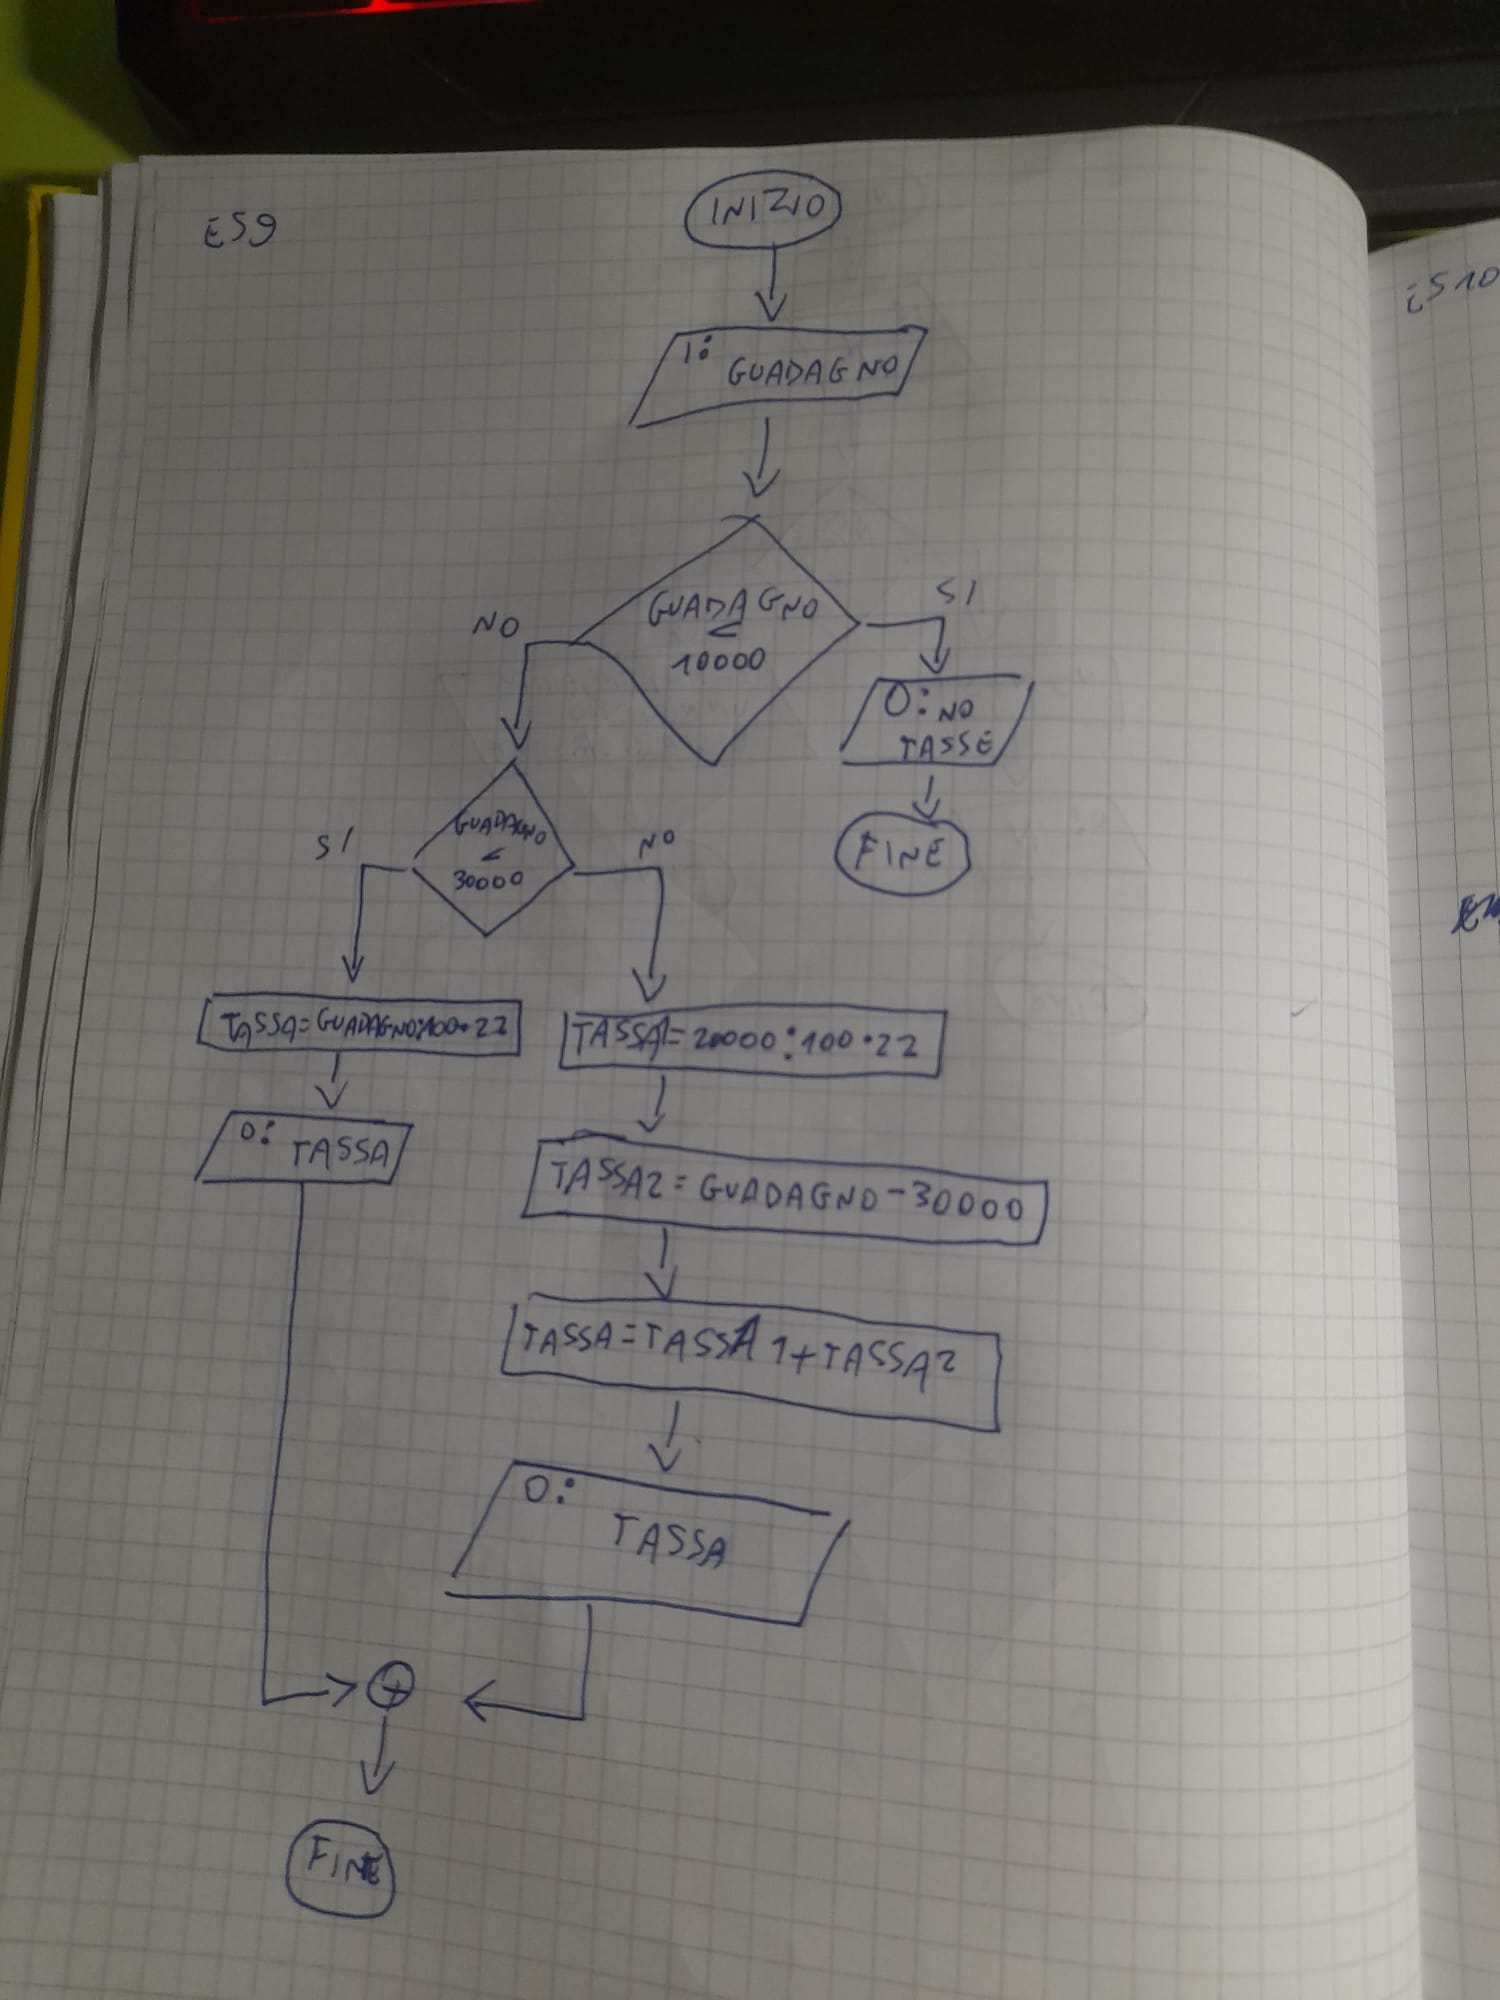 ES9
INIZIO
ES10
I: GUADAGNO
GUADAGNO
<
10000
NO
SI
O: NO
TASSE
FINE
GUADAGNO
<
30000
SI
NO
TASSA=GUADAGNO:100·22
TASSA1=20000:100·22
O: TASSA
TASSA2=GUADAGNO-30000
TASSA=TASSA1+TASSA2
O:
TASSA
+
FINE